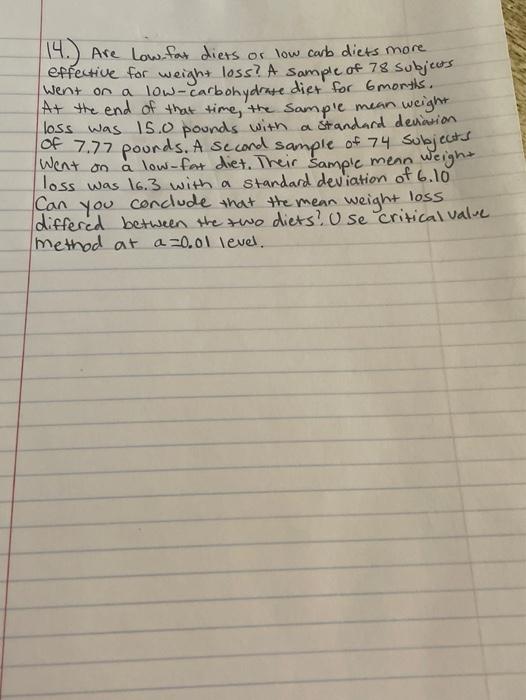 14.) Are Low-fat diets or low carb diets more
effective for weight loss? A sample of 78 subjects
went on a low-carbohydrate diet for 6 months.
At the end of that time, the sample mean weight
loss was 15.0 pounds with a standard deviation
of 7.77 pounds. A second sample of 74 subjects
went on a low-fat diet. Their sample mean weight
loss was 16.3 with a standard deviation of 6.10
Can you conclude that the mean weight loss
differed between the two diets? Use critical value
method at a=0.01 level.